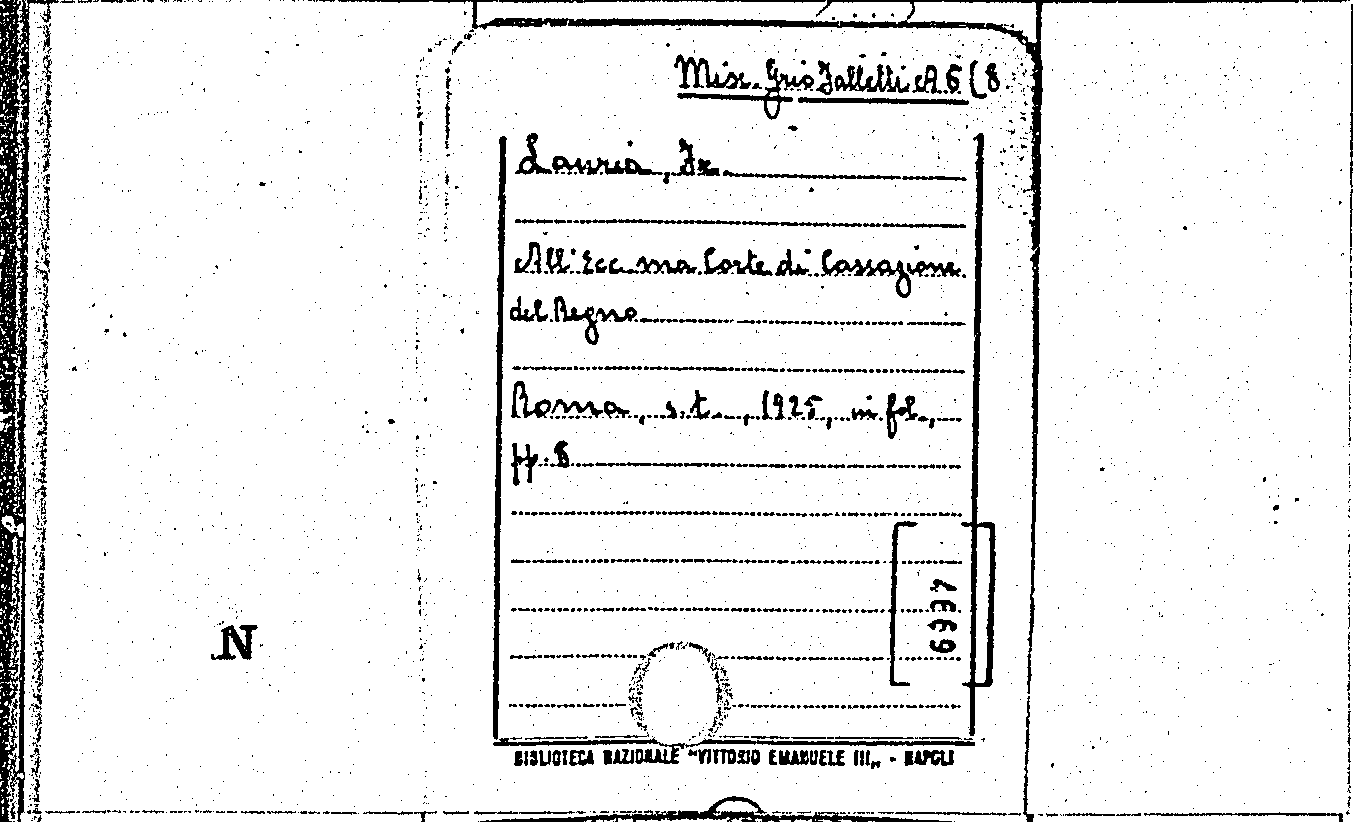 Misc. Grio Falletti A 6 (8
Lauria, Fr.
All'Ecc.ma Corte di Cassazione
del Regno
Roma, s.t., 1925, in fol.,
pp. 8
6337
N
BIBLIOTECA NAZIONALE "VITTORIO EMANUELE III„ - NAPOLI